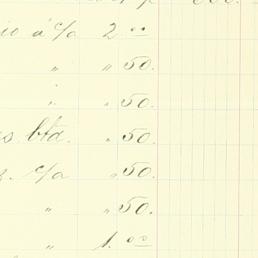 io á c/a 2 00
" " 50.
" " 50.
s. bta. " 50.
c/a " 50.
" " 50.
" 1. 00